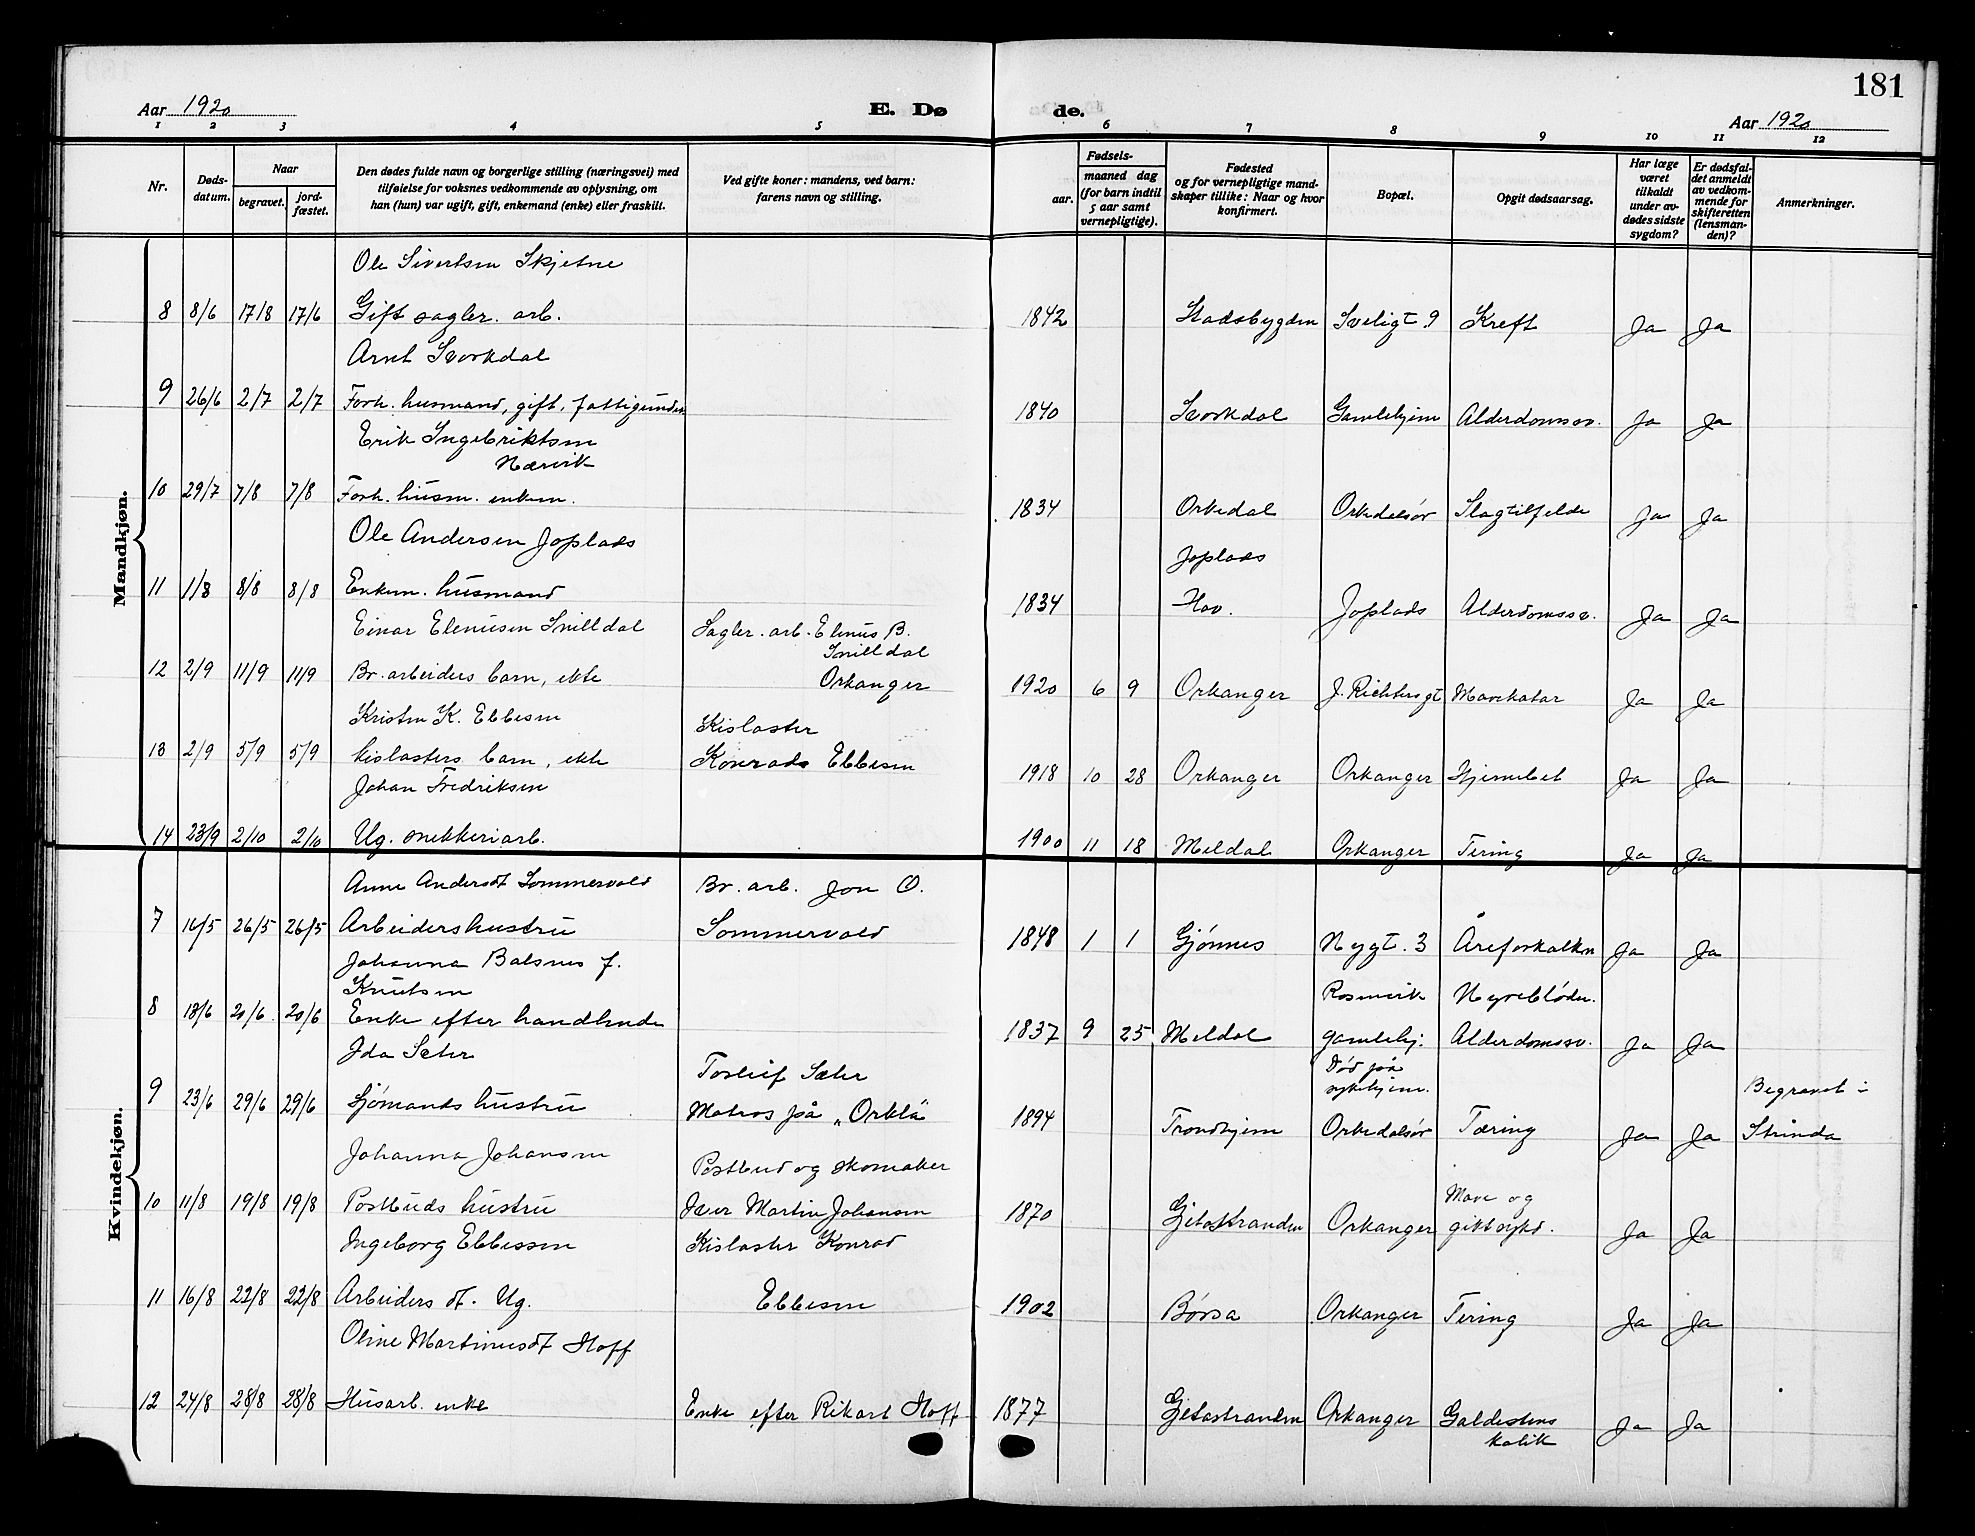 181
Aar 1920
E. Dø
de.
Aar 1920
1 2 3 4 5 6 7 8 9 10 11 12
Nr.
Døds-
datum.
Naar
begravet.
jord-
fæstet.
Den dødes fulde navn og borgerlige stilling (næringsvei) med
tilføielse for voksnes vedkommende av oplysning, om
han (hun) var ugift, gift, enkemand (enke) eller fraskilt.
Ved gifte koner: mandens, ved barn:
farens navn og stilling.
Fødsels-
aar.
maaned dag
(for barn indtil
5 aar samt
vernepligtige).
Fødested
og for vernepligtige mand-
skaper tillike: Naar og hvor
konfirmert.
Bopæl.
Opgit dødsaarsag.
Har læge
været
tilkaldt
under av-
dødes sidste
sygdom?
Er dødsfal-
det anmeldt
av vedkom-
mende for
skifteretten
(lensman-
den)?
Anmerkninger.
Mandkjøn.
Ole Sivertsen Skjetne
8 8/6 17/8 17/6 Gift sagler. arb. 1842 Stadsbygden Sveligt. 9 Kreft Ja Ja
Arnt Svorkdal
9 26/6 2/7 2/7 Forh. husmand, gift, fattigunder 1840 Svorkdal Gamlehjem Alderdomssv. Ja Ja
Erik Ingebriktsen
Nærvik
10 29/7 7/8 7/8 Forh. husm. enkem. 1834 Orkedal Orkedalsør Slagtilfelde Ja Ja
Ole Andersen Joplads
Joplads
11 1/8 8/8 8/8 Enkem. husmand 1834 Hov. Joplads Alderdomssv. Ja Ja
Einar Elenusen Snilldal Sagler. arb. Elenus B.
Snilldal
12 2/9 11/9 11/9 Br. arbeiders barn, ekte Orkanger 1920 6 9 Orkanger J. Richtersgt Mavekatar Ja Ja
Kristen K. Ebbesen Kislaster
13 2/9 5/9 5/9 kislasters barn, ekte Konrad Ebbesen 1918 10 28 Orkanger Orkanger Hjernebet Ja Ja
Johan Fredriksen
14 23/9 2/10 2/10 Ug. snekkeriarb. 1900 11 18 Meldal Orkanger Tering Ja Ja
Kvindekjøn.
Anne Andersdt Sommervold Br. arb. Jon O.
7 16/5 26/5 26/5 Arbeiders hustru Sommervold 1848 1 1 Gjønnes Nygt. 3 Åreforkalkn Ja Ja
Johanna Balsnes f.
Knutsen Rosenvik Nyreblødn.
8 18/6 20/6 20/6 Enke efter handlende 1837 9 25 Meldal gamlehj. Alderdomssv. Ja Ja
Ida Sæter Torleif Sæter Død på
sykehjem. Begravet i
9 23/6 29/6 29/6 Sjømands hustru Matros på „Orkla“ 1894 Trondhjem Orkedalsør Tæring Ja Ja Strinda
Johanna Johansen Postbud og skomaker Mave og
10 11/8 19/8 19/8 Postbuds hustru Iver Martin Johansen 1870 Gjetastranden Orkanger giktsykd. Ja Ja
Ingeborg Ebbesen Kislaster Konrad
11 16/8 22/8 22/8 Arbeiders dt. Ug. Ebbesen 1902 Børsa Orkanger Tering Ja Ja
Oline Martinusdt Hoff
12 24/8 28/8 28/8 Husarb. enke Enke efter Rikart Hoff 1877 Gjetastranden Orkanger Galdestens
kolik Ja Ja